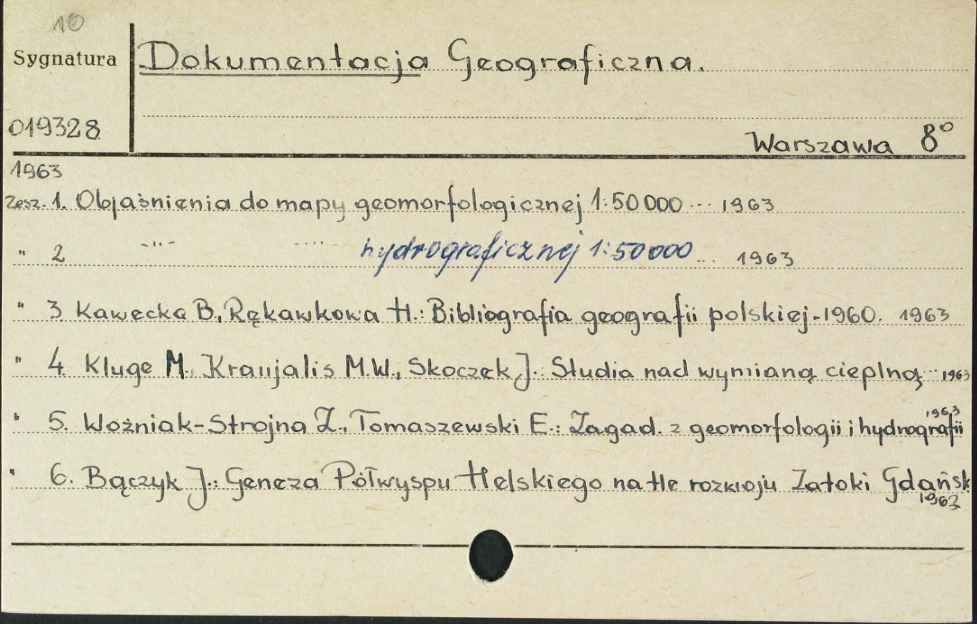 10
Sygnatura
Dokumentacja Geograficzna.
019328
Warszawa 8°
1963
Zesz. 1. Objaśnienia do mapy geomorfologicznej 1:50 000 ... 1963
" 2 -"- .... hydrograficznej 1:50000 .. 1963
" 3 Kawecka B., Rękawkowa H.: Bibliografia geografii polskiej - 1960. 1963
" 4 Kluge M., Kraujalis M.W., Skoczek J.: Studia nad wymianą cieplną ... 1963
" 5. Woźniak-Strojna Z., Tomaszewski E.: Zagad. z geomorfologii i hydrografii 1963
" 6. Bączyk J.: Geneza Półwyspu Helskiego na tle rozwoju Zatoki Gdańsk
1963